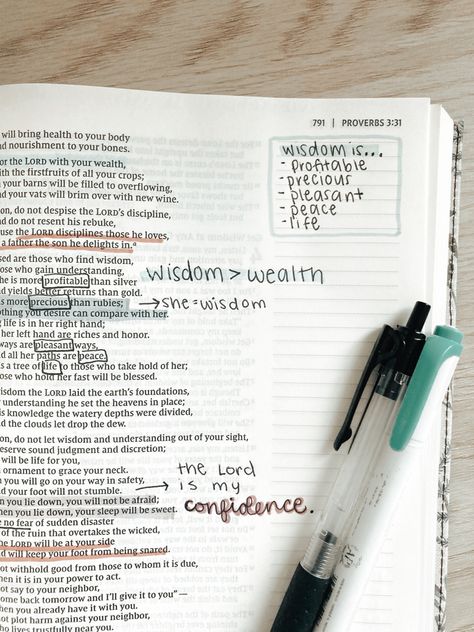 791 | PROVERBS 3:31
will bring health to your body
nd nourishment to your bones.
or the LORD with your wealth,
ith the firstfruits of all your crops;
n your barns will be filled to overflowing,
nd your vats will brim over with new wine.
on, do not despise the LORD's discipline,
nd do not resent his rebuke,
use the LORD disciplines those he loves,
a father the son he delights in.ᵃ
sed are those who find wisdom,
ose who gain understanding,
he is more profitable than silver
nd yields better returns than gold.
s more precious than rubies;
othing you desire can compare with her.
g life is in her right hand;
her left hand are riches and honor.
ways are pleasant ways,
nd all her paths are peace.
is a tree of life to those who take hold of her;
ose who hold her fast will be blessed.
wisdom the LORD laid the earth's foundations,
y understanding he set the heavens in place;
is knowledge the watery depths were divided,
nd the clouds let drop the dew.
on, do not let wisdom and understanding out of your sight,
reserve sound judgment and discretion;
will be life for you,
n ornament to grace your neck.
n you will go on your way in safety,
nd your foot will not stumble.
n you lie down, you will not be afraid;
hen you lie down, your sleep will be sweet.
e no fear of sudden disaster
of the ruin that overtakes the wicked,
he LORD will be at your side
nd will keep your foot from being snared.
ot withhold good from those to whom it is due,
hen it is in your power to act.
ot say to your neighbor,
ome back tomorrow and I'll give it to you" —
hen you already have it with you.
ot plot harm against your neighbor,
ho lives trustfully near you.
wisdom is...
- profitable
- precious
- pleasant
- peace
- life
wisdom > wealth
→ she = wisdom
→ the Lord
is my
confidence.